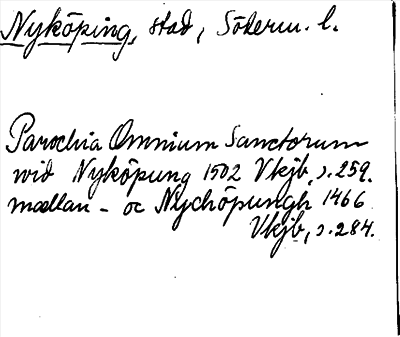 Nyköping, stad, Söderm. l.
Parochia Omnium Sanctorum
wid Nyköpung 1502 Vkjb, s. 259.
mællan - oc Nychöpungh 1466
Vkjb, s. 284.